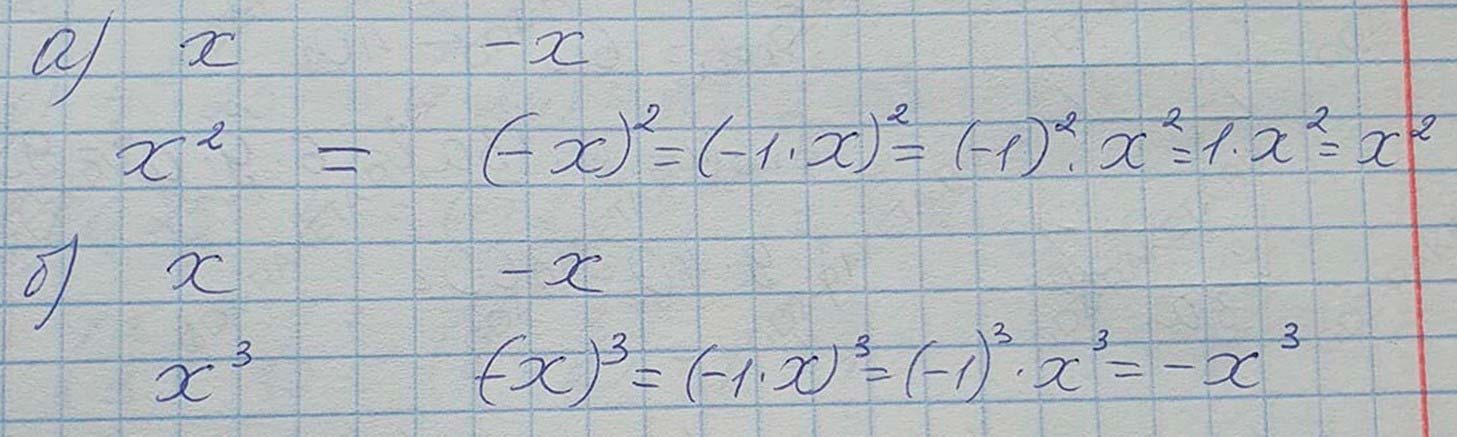 а) x -x
x² = (-x)² = (-1·x)² = (-1)²·x² = 1·x² = x²
б) x -x
x³ (-x)³ = (-1·x)³ = (-1)³·x³ = -x³